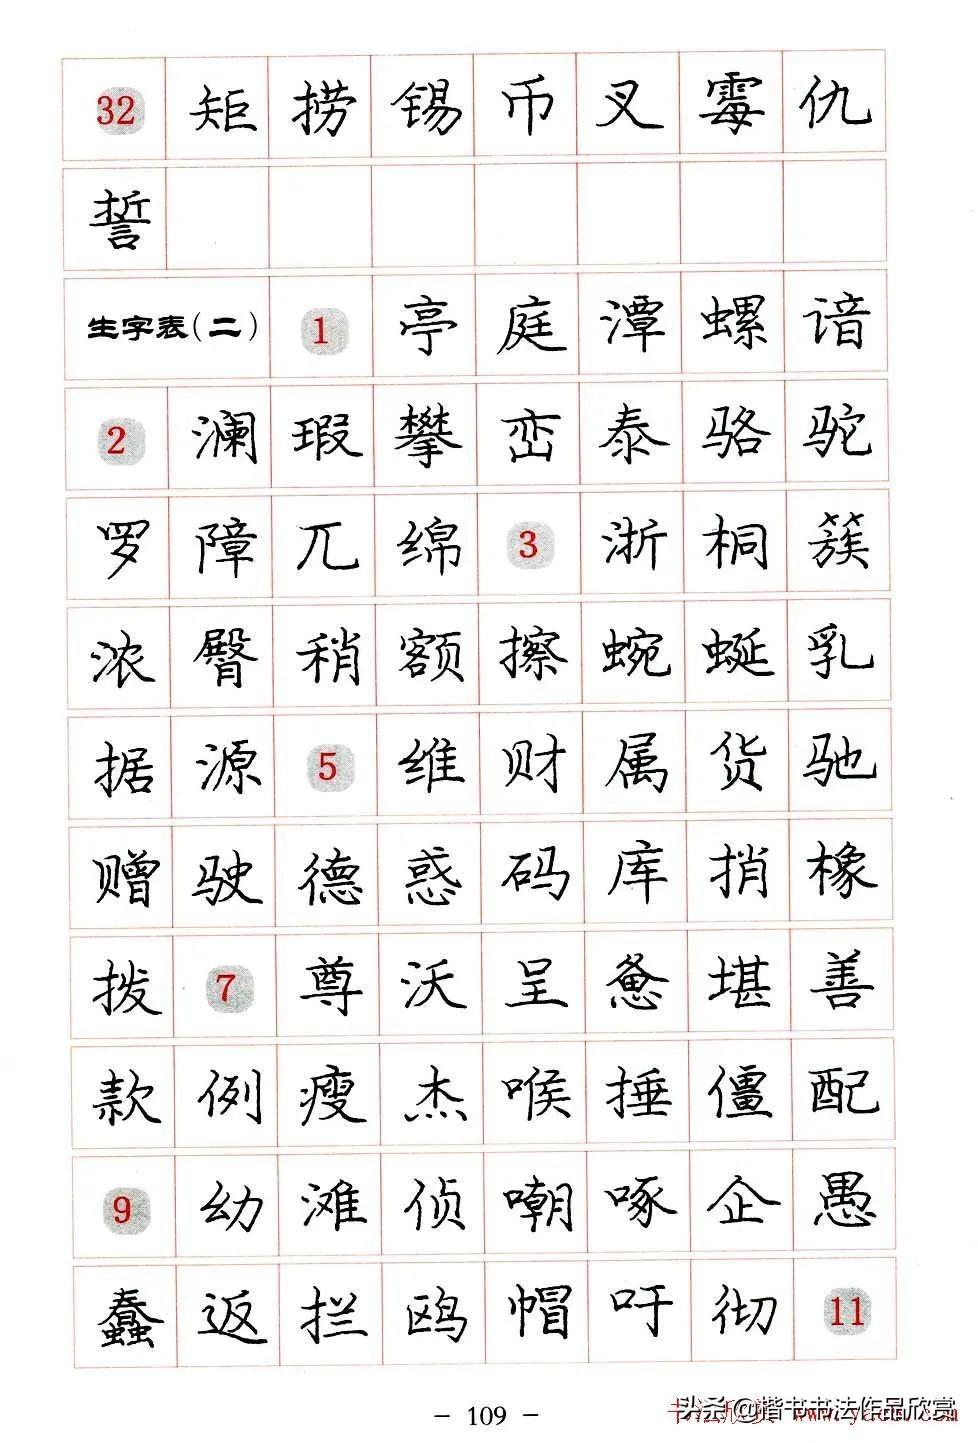 32 矩 捞 锡 币 叉 霉 仇
誓
生字表(二) 1 亭 庭 潭 螺 谙
2 澜 瑕 攀 峦 泰 骆 驼
罗 障 兀 绵 3 浙 桐 簇
浓 臀 稍 额 擦 蜿 蜒 乳
据 源 5 维 财 属 货 驰
赠 驶 德 惑 码 库 捎 橡
拨 7 尊 沃 呈 惫 堪 善
款 例 瘦 杰 喉 捶 僵 配
9 幼 滩 侦 嘲 啄 企 愚
蠢 返 拦 鸥 帽 吁 彻 11
- 109 -
头条@楷书书法作品欣赏